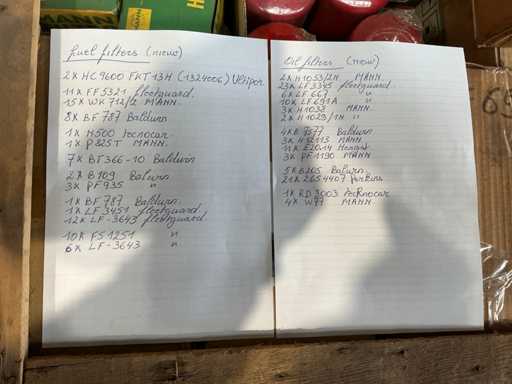 MANN
fuel filters (new)
2x HC9600 FKT 13H (1324006)
11x FF5321 fleetguard.
15x WK 712/2 MANN.
8x BF 787 Baldwin
1x H500 tecnocar.
1x P825T MANN.
7x BF366-10 Baldwin
2x B109 Balwin.
3x PF935 "
1x BF 787 Baldwin.
1x LF3451 fleetguard.
12x LF-3643 fleetguard
10x FS1251 "
6x LF-3643 "
Oil filters (new)
2x H1053/2N MANN
23x LF3345 fleetguard.
6x LF667 "
10x LF691A "
3x H1038 MANN.
2x H1029/1N "
4x B7577 Baldwin
3x MANN.
11x Hengst
3x PF1190 MANN.
5x B205 Balwin.
21x 2654407 Perkins
1x RD3003 tecnocar
4x W77 MANN.